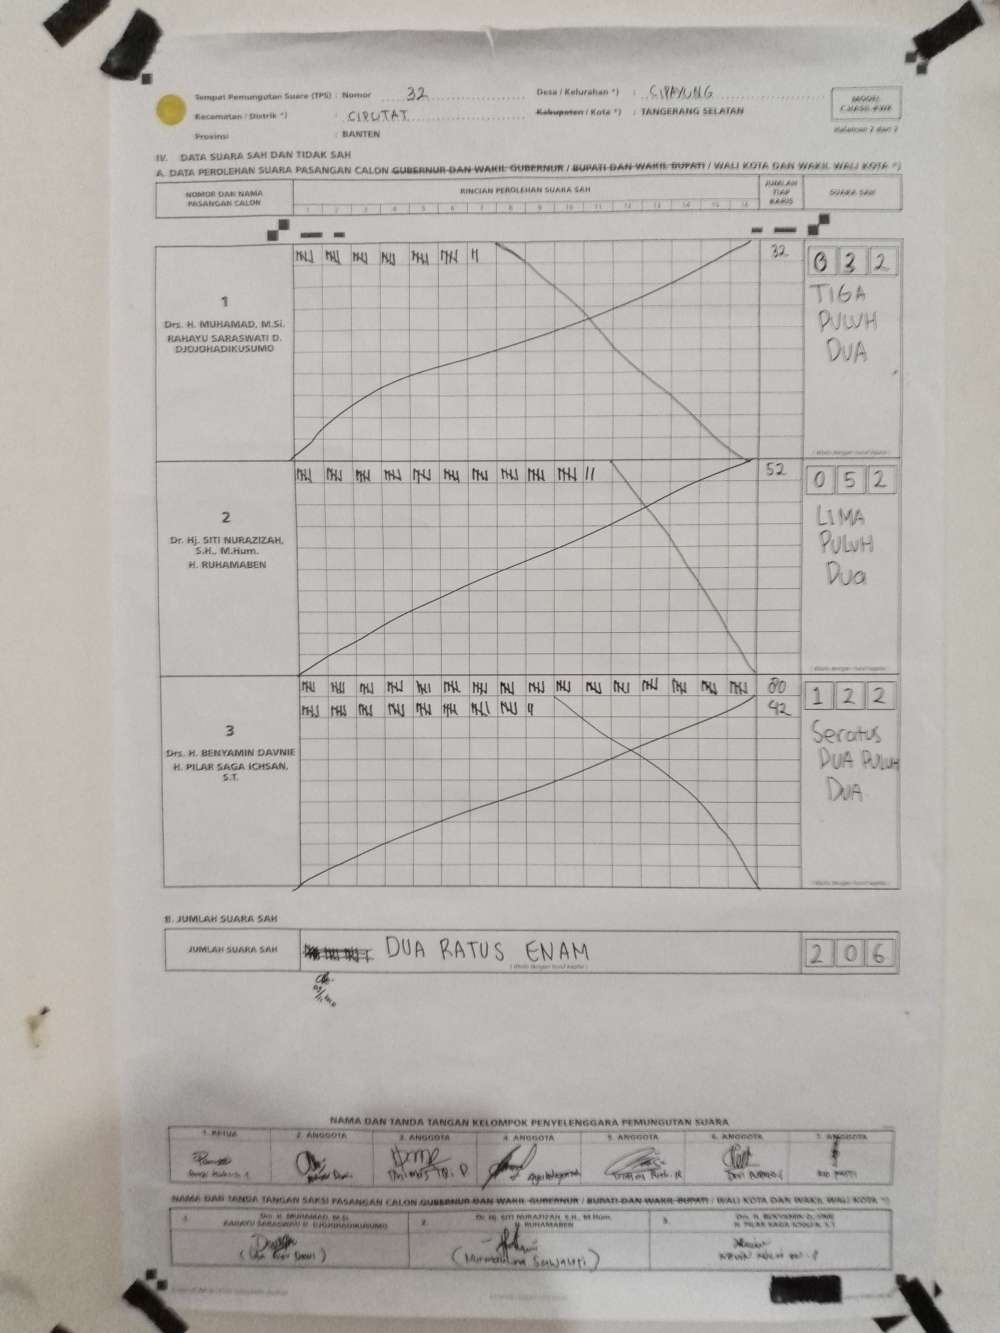 Tempat Pemungutan Suara (TPS) : Nomor 32 Desa / Kelurahan *) : CIPAYUNG
Kecamatan / Distrik *) : CIPUTAT Kabupaten / Kota *) : TANGERANG SELATAN
Provinsi : BANTEN
MODEL
C.HASIL-KWK
Halaman 2 dari 2
IV. DATA SUARA SAH DAN TIDAK SAH
A. DATA PEROLEHAN SUARA PASANGAN CALON GUBERNUR DAN WAKIL GUBERNUR / BUPATI DAN WAKIL BUPATI / WALI KOTA DAN WAKIL WALI KOTA *)
NOMOR DAN NAMA
PASANGAN CALON
RINCIAN PEROLEHAN SUARA SAH
1 2 3 4 5 6 7 8 9 10 11 12 13 14 15 16
JUMLAH
TIAP
BARIS
SUARA SAH
1
Drs. H. MUHAMAD, M.Si.
RAHAYU SARASWATI D.
DJOJOHADIKUSUMO
32
0 3 2
TIGA
PULUH
DUA
2
Dr. Hj. SITI NURAZIZAH,
S.H., M.Hum.
H. RUHAMABEN
52
0 5 2
LIMA
PULUH
Dua
3
Drs. H. BENYAMIN DAVNIE
H. PILAR SAGA ICHSAN,
S.T.
80
42
1 2 2
Seratus
DUA PULUH
DUA
B. JUMLAH SUARA SAH
JUMLAH SUARA SAH DUA RATUS ENAM 2 0 6
(ditulis dengan huruf kapital)
NAMA DAN TANDA TANGAN KELOMPOK PENYELENGGARA PEMUNGUTAN SUARA
1. KETUA 2. ANGGOTA 3. ANGGOTA 4. ANGGOTA 5. ANGGOTA 6. ANGGOTA 7. ANGGOTA
NAMA DAN TANDA TANGAN SAKSI PASANGAN CALON GUBERNUR DAN WAKIL GUBERNUR / BUPATI DAN WAKIL BUPATI / WALI KOTA DAN WAKIL WALI KOTA *)
1. Drs. H. MUHAMAD, M.Si.
RAHAYU SARASWATI D. DJOJOHADIKUSUMO
2. Dr. Hj. SITI NURAZIZAH, S.H., M.Hum.
H. RUHAMABEN
3. Drs. H. BENYAMIN DAVNIE
H. PILAR SAGA ICHSAN, S.T.